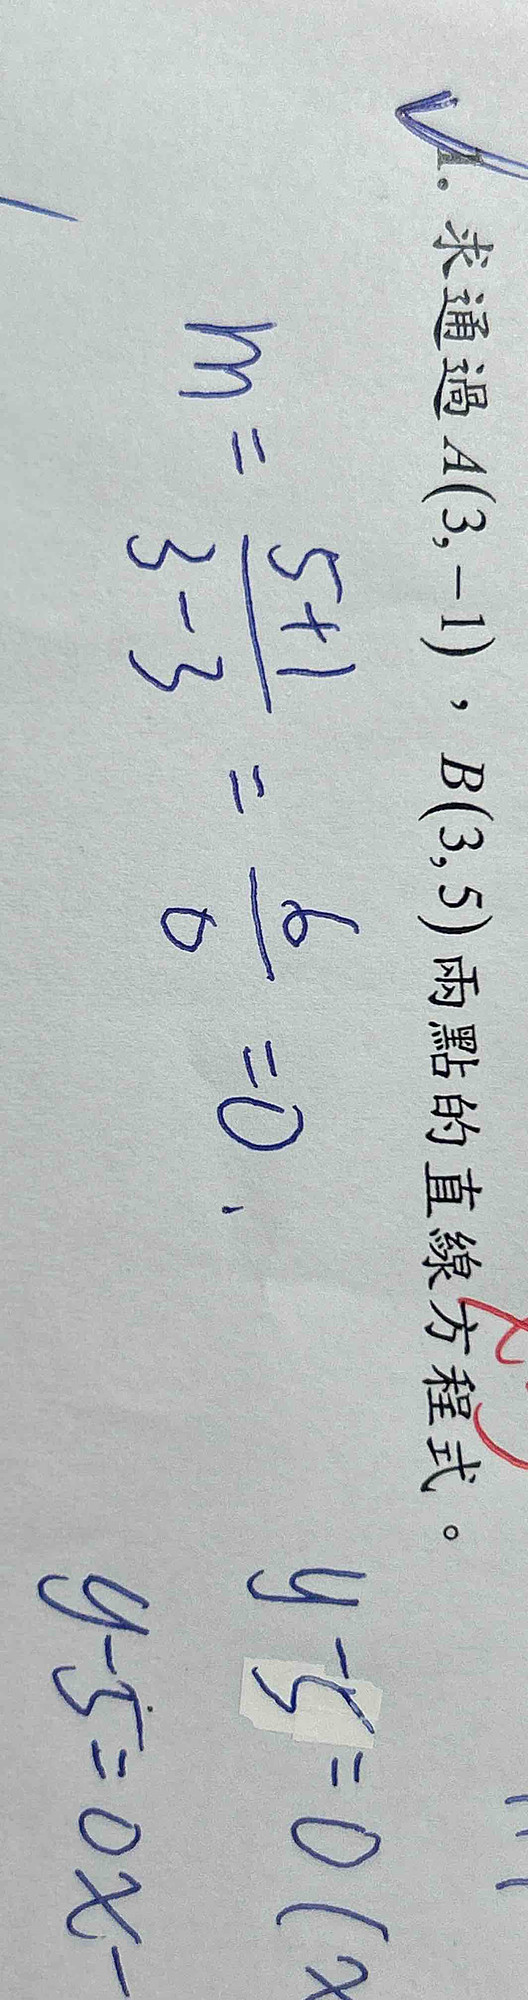 1. 求通過A(3,-1)，B(3,5)兩點的直線方程式。
m = \frac{5+1}{3-3} = \frac{6}{0} = 0
y-5=0(x
y-5=0x-